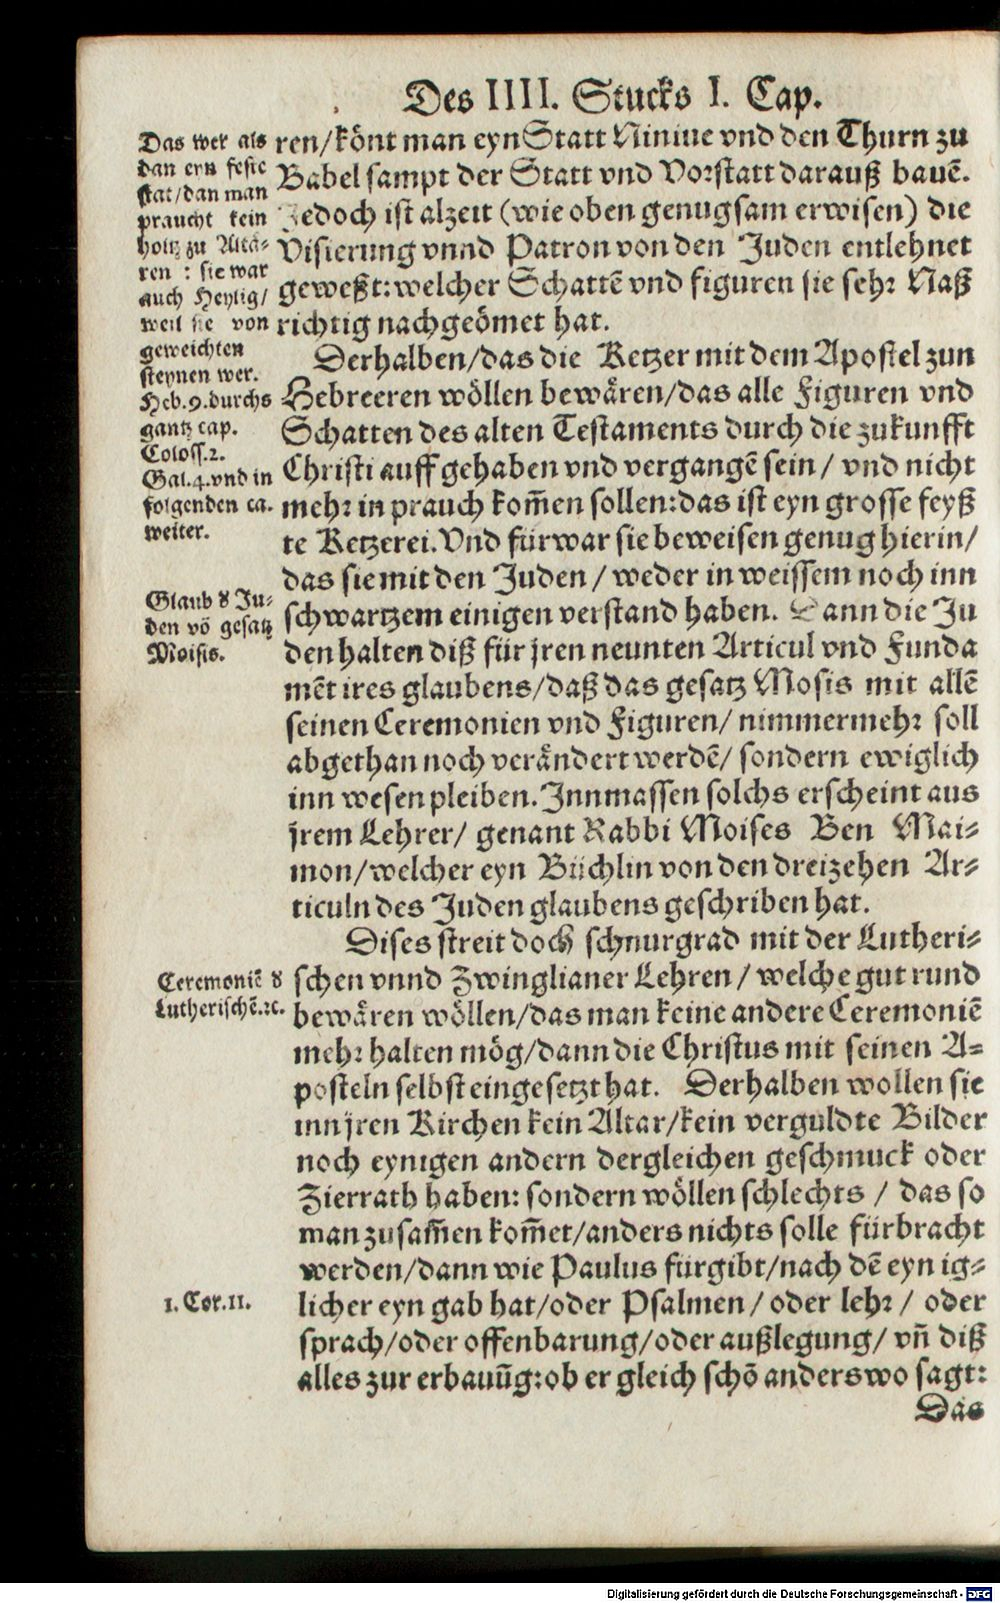 Des IIII. Stucks I. Cap.
Das wer als
dan eyn feste
stat/dan man
praucht kein
holtz zu Altä-
ren : sie war
auch Heylig/
weil sie von
geweichten
steynen wer.
Heb.9.durchs
gantz cap.
Coloss.2.
Gal.4.vnd in
folgenden ca.
weiter.
Glaub d̕ Ju-
den võ gesatz
Moisis.
Ceremoniē d̕
Lutherischē.ꝛc.
1. Cor.11.
ren/könt man eyn Statt Niniue vnd den Thurn zu
Babel sampt der Statt vnd Vorstatt darauß bauē.
Jedoch ist alzeit (wie oben genugsam erwisen) die
Visierung vnnd Patron von den Juden entlehnet
geweßt: welcher Schattē vnd figuren sie sehr Naß
richtig nachgeömet hat.
Derhalben/das die Ketzer mit dem Apostel zun
Hebreeren wöllen bewären/das alle Figuren vnd
Schatten des alten Testaments durch die zukunfft
Christi auffgehaben vnd vergangē sein/ vnd nicht
mehr in prauch kom̄en sollen: das ist eyn grosse feyß
te Ketzerei. Vnd fürwar sie beweisen genug hierin/
das sie mit den Juden / weder in weissem noch inn
schwartzem einigen verstand haben. Dann die Ju
den halten diß für jren neunten Articul vnd Funda
mēt ires glaubens/daß das gesatz Mosis mit allē
seinen Ceremonien vnd Figuren/ nimmermehr soll
abgethan noch verändert werdē/ sondern ewiglich
inn wesen pleiben. Innmassen solchs erscheint aus
jrem Lehrer/ genant Rabbi Moises Ben Mai-
mon/welcher eyn Büchlin von den dreizehen Ar-
ticuln des Juden glaubens geschriben hat.
Dises streit doch schnurgrad mit der Lutheri-
schen vnnd Zwinglianer Lehren / welche gut rund
bewären wöllen/das man keine andere Ceremoniē
mehr halten mög/dann die Christus mit seinen A-
posteln selbst eingesetzt hat. Derhalben wollen sie
inn jren Kirchen kein Altar/kein verguldte Bilder
noch eynigen andern dergleichen geschmuck oder
Zierrath haben: sondern wöllen schlechts / das so
man zusam̄en kom̄et/anders nichts solle fürbracht
werden/dann wie Paulus fürgibt/nach dē eyn ig-
licher eyn gab hat/oder Psalmen / oder lehr / oder
sprach/oder offenbarung/oder außlegung/ vn̄ diß
alles zur erbauūg: ob er gleich schō anderswo sagt:
Das
Digitalisierung gefördert durch die Deutsche Forschungsgemeinschaft - DFG